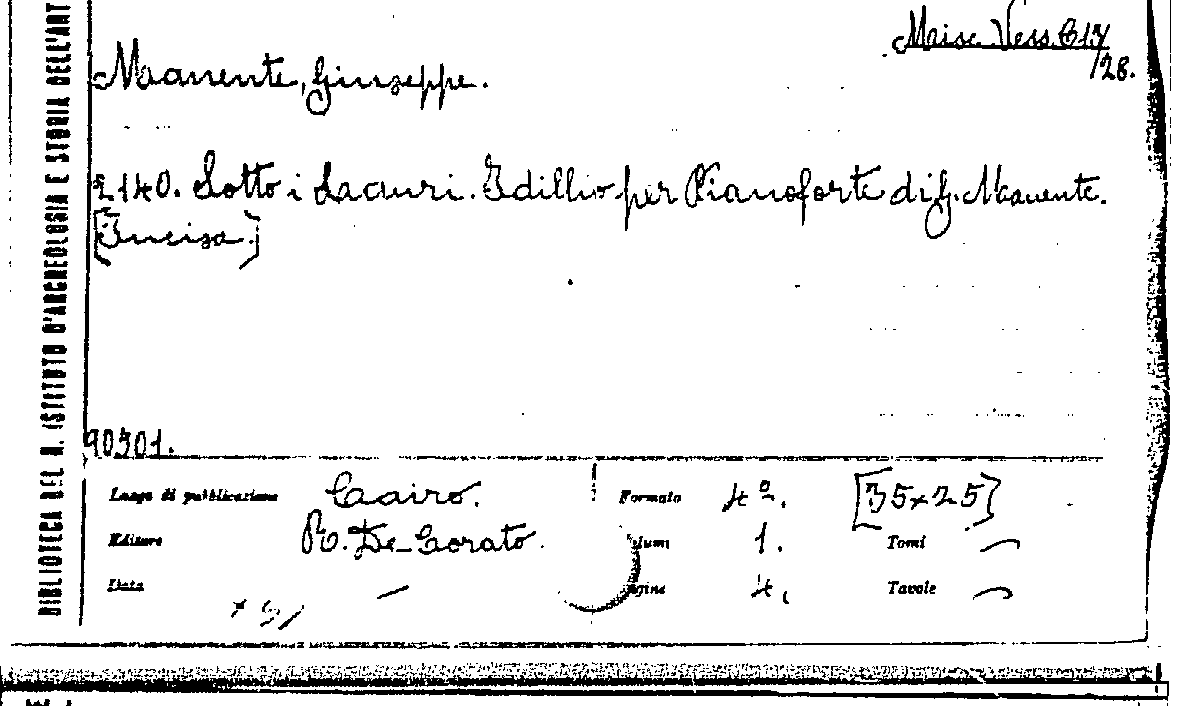 Misc. Vess. C 17
/28.
Manente, Giuseppe.
2140. Sotto i Lauri. Idillio per Pianoforte di G. Manente.
[Incisa.]
90301.
Luogo di pubblicazione Cairo. Formato 4º. [35×25]
Editore R. De-Corato. Volumi 1. Tomi —
Data — Pagine 4. Tavole —
BIBLIOTECA DEL R. ISTITUTO D'ARCHEOLOGIA E STORIA DELL'ART